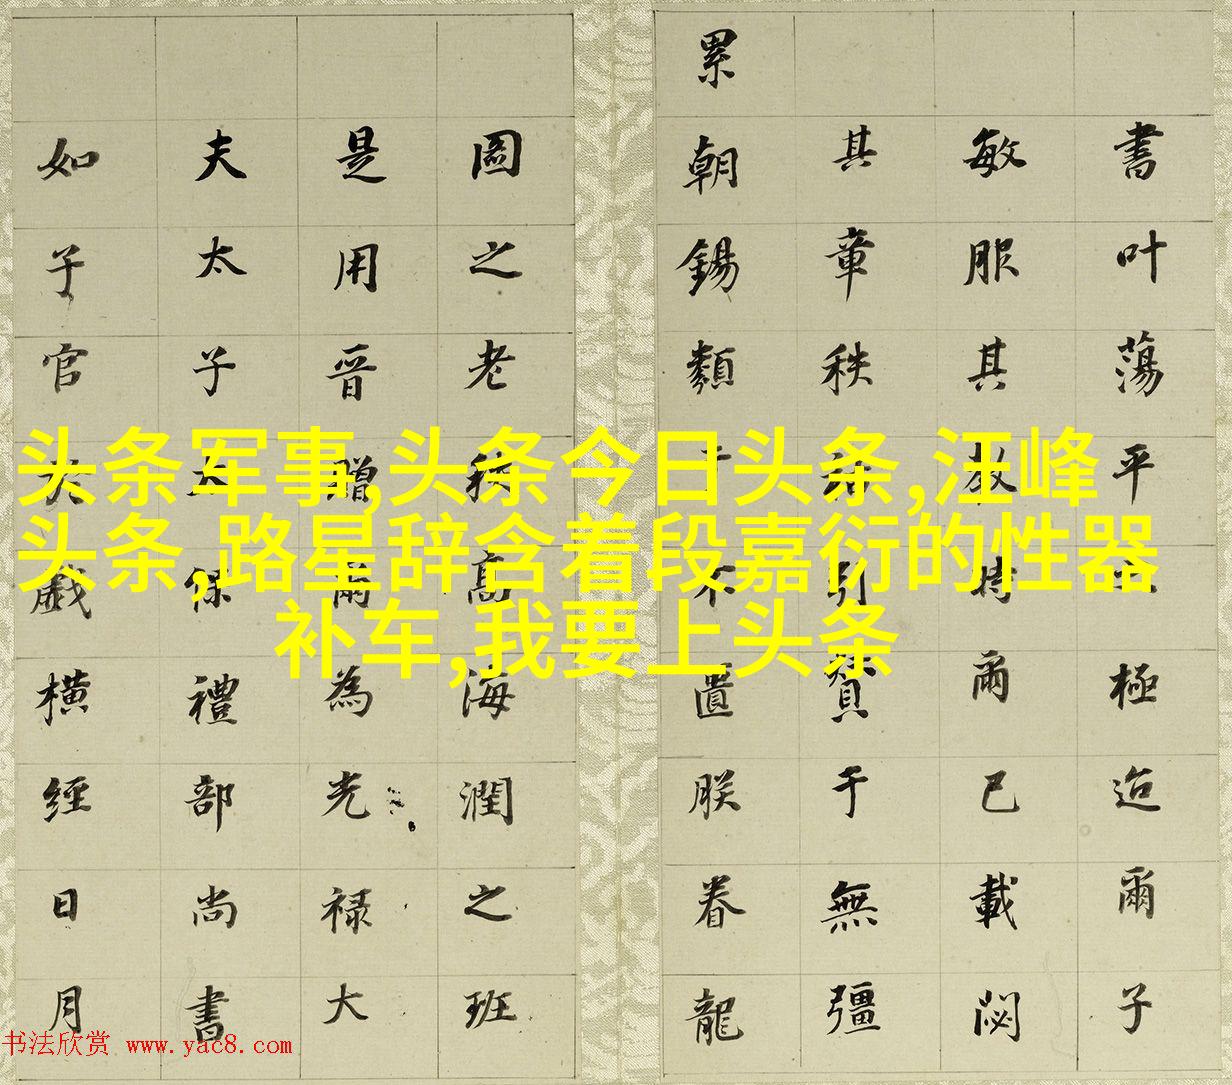 書叶蕩平極迨爾子
敏服其教爾已載閟
其章秩引賛于無疆
累朝錫類于不匱朕眷龍
圖之老秩高海潤之班
是用晉贈爾為光禄大
夫太子太保禮部尚書
如子官於戲橫經日月
头条军事,头条今日头条,汪峰
头条,路星辞含着段嘉衍的性器
补车,我要上头条
书法欣赏 www.yac8.com